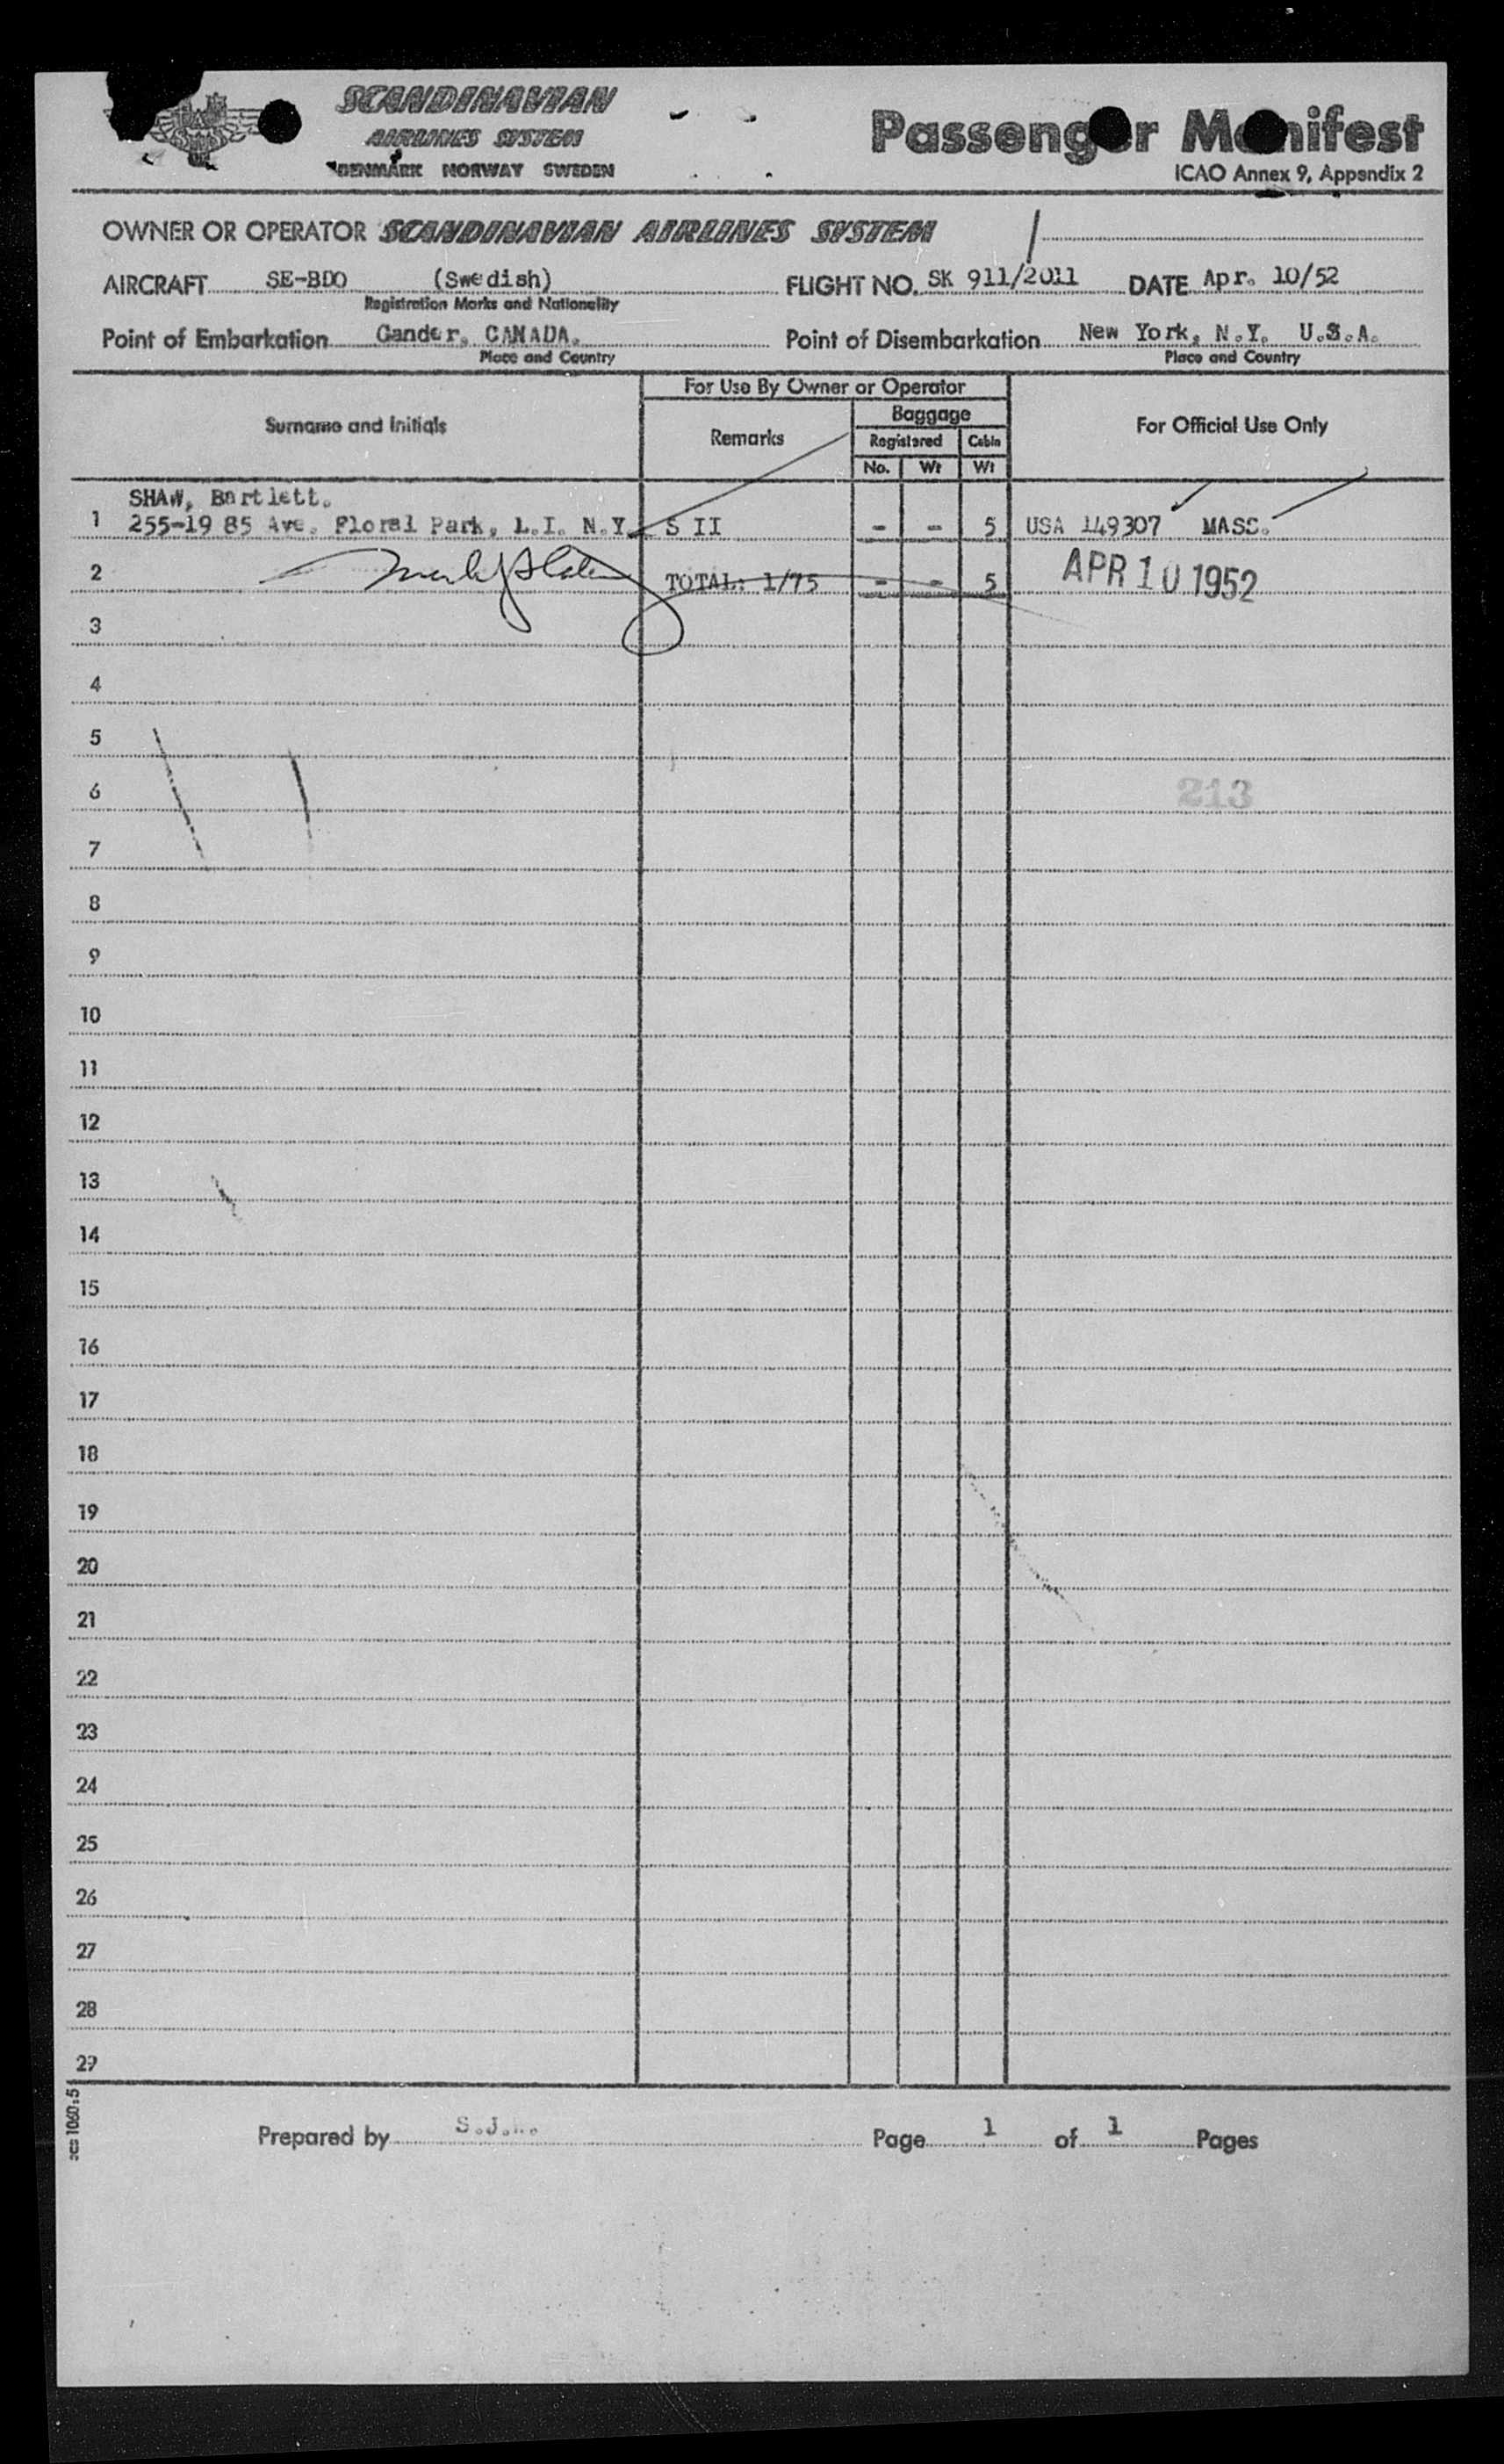 SCANDINAVIAN
AIRLINES SYSTEM
DENMARK NORWAY SWEDEN
Passenger Manifest
ICAO Annex 9, Appendix 2
OWNER OR OPERATOR SCANDINAVIAN AIRLINES SYSTEM
AIRCRAFT SE-BDO (Swedish) FLIGHT NO. SK 911/2011 DATE Apr. 10/52
Registration Marks and Nationality
Point of Embarkation Gander, CANADA. Point of Disembarkation New York, N.Y. U.S.A.
Place and Country Place and Country
For Use By Owner or Operator
Surname and Initials Remarks Baggage For Official Use Only
Registered Cabin
No. Wt Wt
SHAW, Bartlett.
1 255-19 85 Ave. Floral Park, L.I. N.Y. S II - - 5 USA 149307 MASS.
2 TOTAL: 1/75 - - 5 APR 10 1952
3
4
5
6 213
7
8
9
10
11
12
13
14
15
16
17
18
19
20
21
22
23
24
25
26
27
28
29
Prepared by Page 1 of 1 Pages